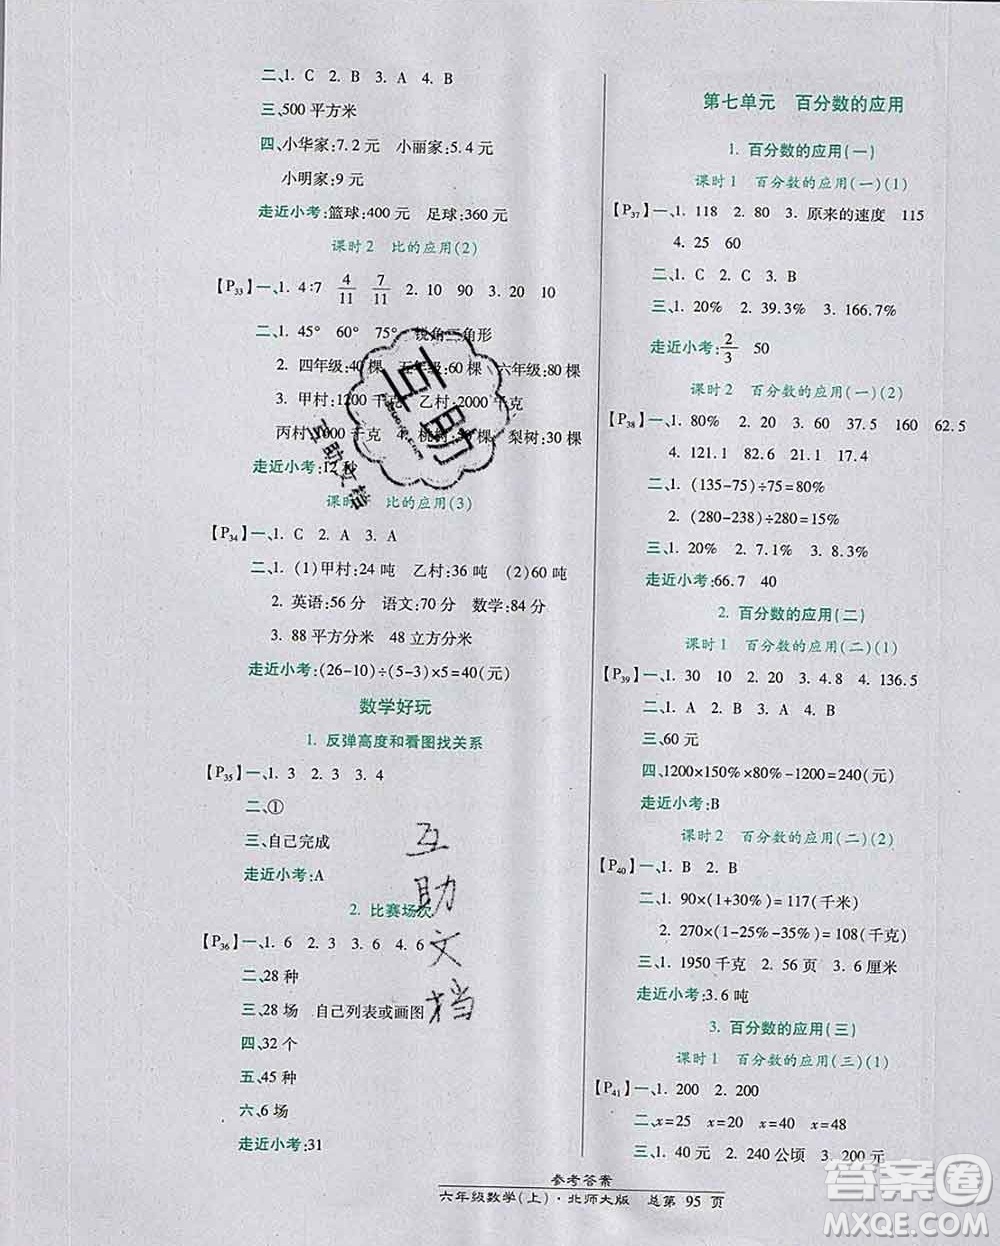 二、1. C 2. B 3. A 4. B
三、500 平方米
四、小华家:7.2 元 小丽家:5.4 元
小明家:9 元
走近小考:篮球:400 元 足球:360 元
课时 2 比的应用(2)
【P33】一、1. 4∶7 4/11 7/11 2. 10 90 3. 20 10
二、1. 45° 60° 75° 锐角三角形
2. 四年级:40 棵 五年级:60 棵 六年级:80 棵
3. 甲村:1200 千克 乙村:2000 千克
丙村:1000 千克 4. 桃树:50 棵 梨树:30 棵
走近小考:12 种
课时 比的应用(3)
【P34】一、1. C 2. A 3. A
二、1. (1)甲村:24 吨 乙村:36 吨 (2)60 吨
2. 英语:56 分 语文:70 分 数学:84 分
3. 88 平方分米 48 立方分米
走近小考:(26-10)÷(5-3)×5=40(元)
数学好玩
1. 反弹高度和看图找关系
【P35】一、1. 3 2. 3 3. 4
二、①
三、自己完成
走近小考:A
2. 比赛场次
【P36】一、1. 6 2. 3 3. 6 4. 6
二、28 种
三、28 场 自己列表或画图
四、32 个
五、45 种
六、6 场
走近小考:31
第七单元 百分数的应用
1. 百分数的应用(一)
课时 1 百分数的应用(一)(1)
【P37】一、1. 118 2. 80 3. 原来的速度 115
4. 25 60
二、1. C 2. C 3. B
三、1. 20% 2. 39.3% 3. 166.7%
走近小考:2/3 50
课时 2 百分数的应用(一)(2)
【P38】一、1. 80% 2. 20 3. 60 37.5 160 62.5
4. 121.1 82.6 21.1 17.4
二、1. (135-75)÷75=80%
2. (280-238)÷280=15%
三、1. 20% 2. 7.1% 3. 20%
走近小考:66.7 40
2. 百分数的应用(二)
课时 1 百分数的应用(二)(1)
【P39】一、1. 30 10 2. 20 3. 4.8 4. 136.5
二、1. A 2. B 3. A
三、60 元
四、1200×150%×80%-1200=240(元)
走近小考:B
课时 2 百分数的应用(二)(2)
【P40】一、1. B 2. B
二、1. 90×(1+30%)=117(千米)
2. 270×(1-25%-35%)=108(千克)
三、1. 1950 千克 2. 56 页 3. 6 厘米
走近小考:3.6 吨
3. 百分数的应用(三)
课时 1 百分数的应用(三)(1)
【P41】一、1. 200 2. 200
二、x=25 x=20 x=40 x=48
三、1. 40 元 2. 240 公顷 3. 200 元
参考答案
六年级数学(上)·北师大版 总第 95 页
互助
互助文档
互助文档
答案圈
MXQE.COM